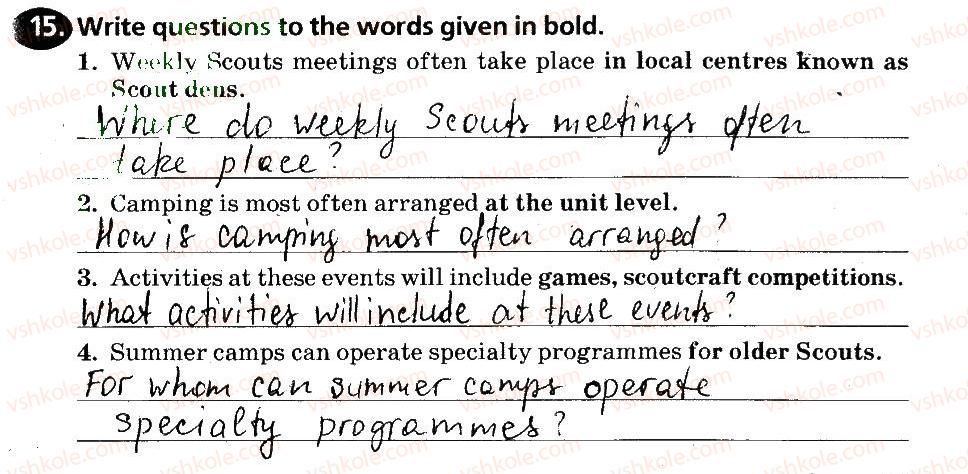 15. Write questions to the words given in bold.
1. Weekly Scouts meetings often take place in local centres known as
Scout dens.
Where do weekly Scouts meetings often
take place?
2. Camping is most often arranged at the unit level.
How is camping most often arranged?
3. Activities at these events will include games, scoutcraft competitions.
What activities will include at these events?
4. Summer camps can operate specialty programmes for older Scouts.
For whom can summer camps operate
specialty programmes?
vshkole.com